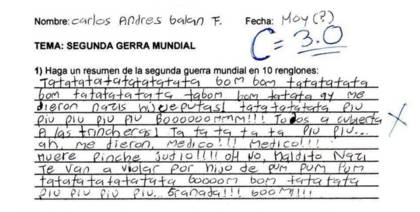 Nombre: carlos Andres balan F. Fecha: May (?)
C= 3.0
TEMA: SEGUNDA GERRA MUNDIAL
1) Haga un resumen de la segunda guerra mundial en 10 renglones:
Tatatatatatatatatata bom bom tatatatata
bom tatatatatata tabom bom tatata ay me
dieron nazis hijeputas! tatatatatata piu
piu piu piu piu Boooooommm!!! Todos a cubierta
A las trincheras! Ta ta ta ta ta Piu Piu...
ah, me dieron, medico!!! Medico!!!!
muere Pinche judio!!!! oH No, Maldito Nazi
Te van a violar por hijo de pum pum pum
tatatatatatatatata booooom bom tata tata
piu piu piu piu piu... Granada!!! booM!!!!